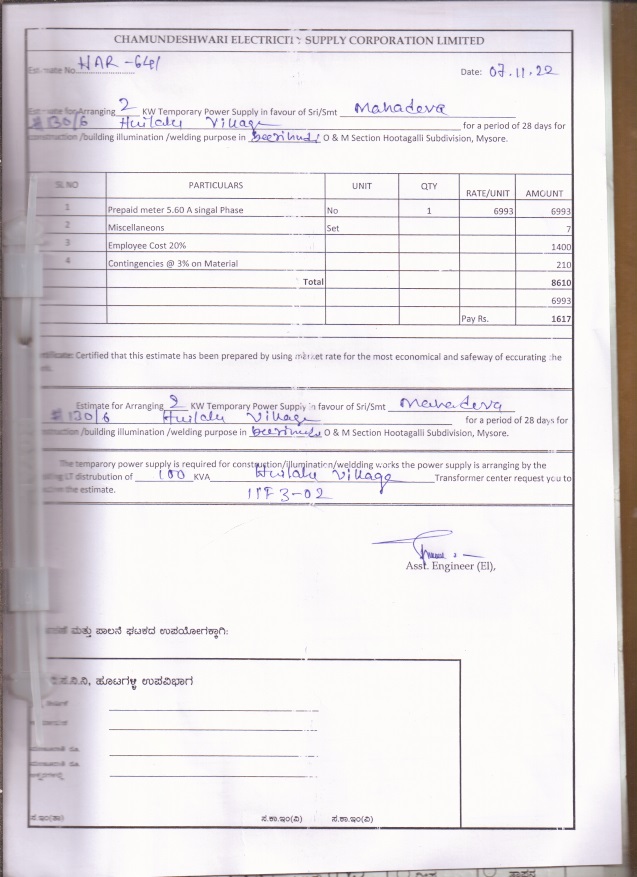 CHAMUNDESHWARI ELECTRICITY SUPPLY CORPORATION LIMITED
Estimate No. HAR-641
Date: 07.11.22
Estimate for Arranging 2 KW Temporary Power Supply in favour of Sri/Smt Mahadeva
# 130/6 Huilalu Village for a period of 28 days for
construction /building illumination /welding purpose in O & M Section Hootagalli Subdivision, Mysore.
SL.NO PARTICULARS UNIT QTY RATE/UNIT AMOUNT
1 Prepaid meter 5.60 A singal Phase No 1 6993 6993
2 Miscellaneons Set 7
3 Employee Cost 20% 1400
4 Contingencies @ 3% on Material 210
Total 8610
6993
Pay Rs. 1617
Certificate: Certified that this estimate has been prepared by using market rate for the most economical and safeway of eccurating the
Estimate for Arranging 2 KW Temporary Power Supply in favour of Sri/Smt Mahadeva
# 130/6 Huilalu Village for a period of 28 days for
construction /building illumination /welding purpose in O & M Section Hootagalli Subdivision, Mysore.
The temparory power supply is required for construction/illumination/weldding works the power supply is arranging by the
LT distrubution of 100 KVA Huilalu Village Transformer center request you to
the estimate.
Asst. Engineer (El),
ಮತ್ತು ಪಾಲನೆ ಘಟಕದ ಉಪಯೋಗಕ್ಕಾಗಿ:
ಹೂಟಗಳ್ಳಿ ಉಪವಿಭಾಗ
ಸ.ಇಂ(ಶಾ) ಸ.ಕಾ.ಇಂ(ವಿ) ಸ.ಕಾ.ಇಂ(ವಿ)